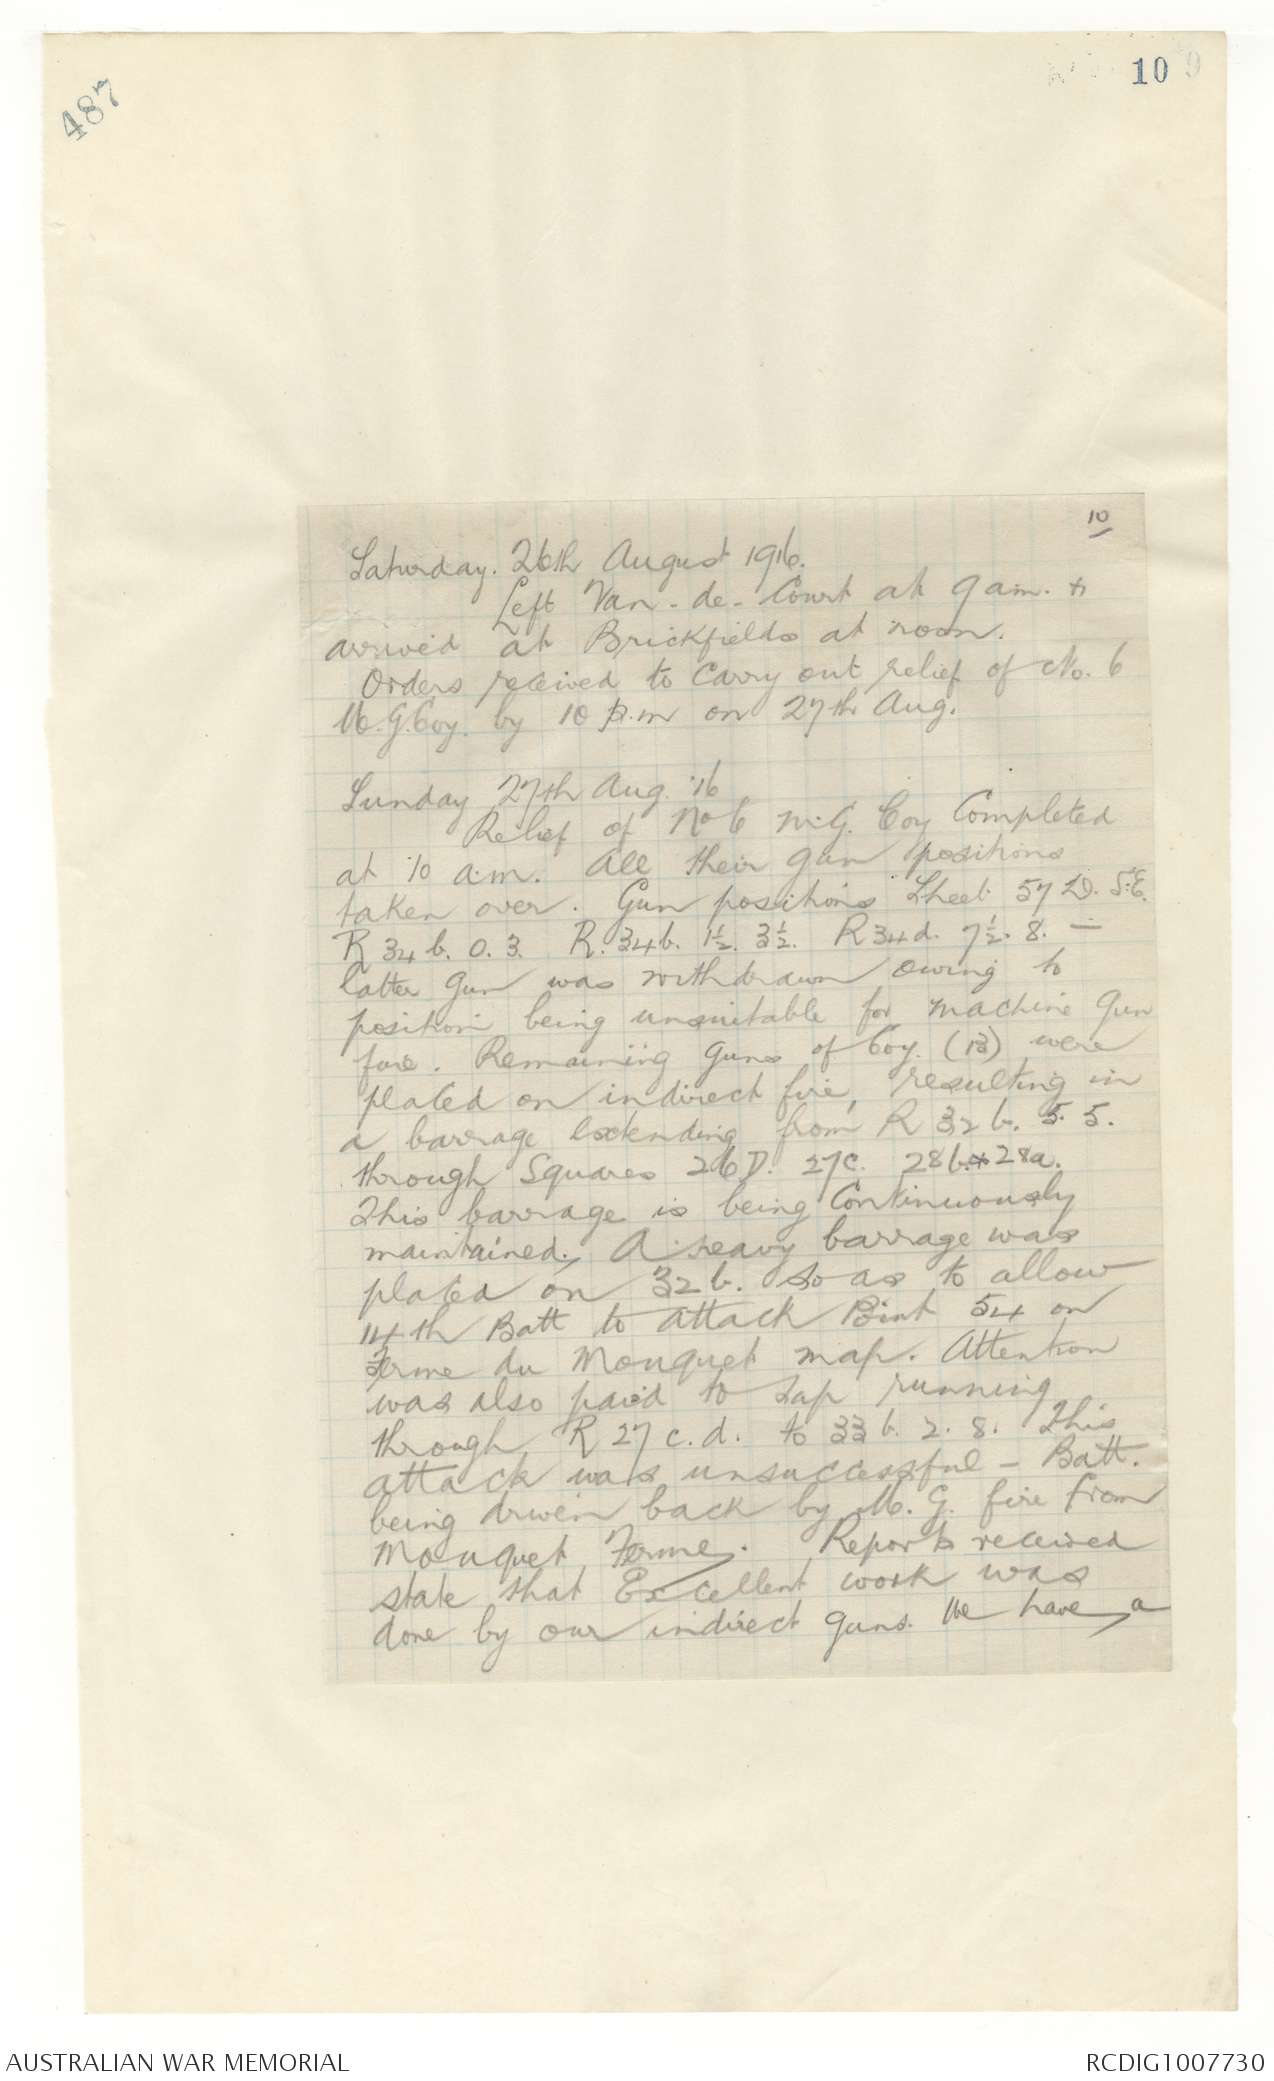 487
10
10
Saturday. 26th August 1916.
Left Van-de-Court at 9 am. &
arrived at Brickfields at noon.
Orders received to Carry out relief of No. 6
M.G.Coy. by 10 p.m on 27th Aug.
Sunday 27th Aug. '16
Relief of No 6 M.G. Coy Completed
at 10 a.m. All their gun positions
taken over. Gun positions Sheet 57 D. S.E.
R 34 b. 0. 3. R. 34b. 1½. 3½. R 34d. 7½. 8. —
latter gun was withdrawn owing to
position being unsuitable for machine Gun
fire. Remaining Guns of Coy. (13) were
placed on indirect fire, resulting in
a barrage extending from R 32 b. 5. 5.
through Squares 26D. 27C. 28b. & 28a.
This barrage is being Continuously
maintained. A heavy barrage was
placed on 32 b. so as to allow
14th Batt to attack Point 54 on
Ferme du Mouquet map. Attention
was also paid to Sap running
through R 27 c.d. to 33 b. 2. 8. This
attack was unsuccessful - Batt.
being driven back by M.G. fire from
Mouquet Ferme. Reports received
state that Excellent work was
done by our indirect guns. We have a
AUSTRALIAN WAR MEMORIAL
RCDIG1007730